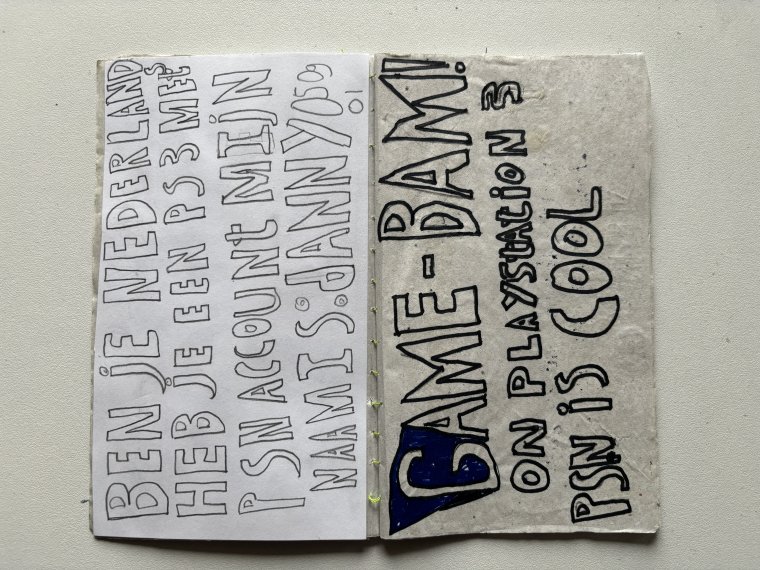 BEN je NEDERLAND
HEB je EEN PS3 MET
PSN ACCOUNT MIJN
NAAM IS: dANNY0509
01
GAME-BAM!
ON PLAYStAtioN 3
PSN iS COOL